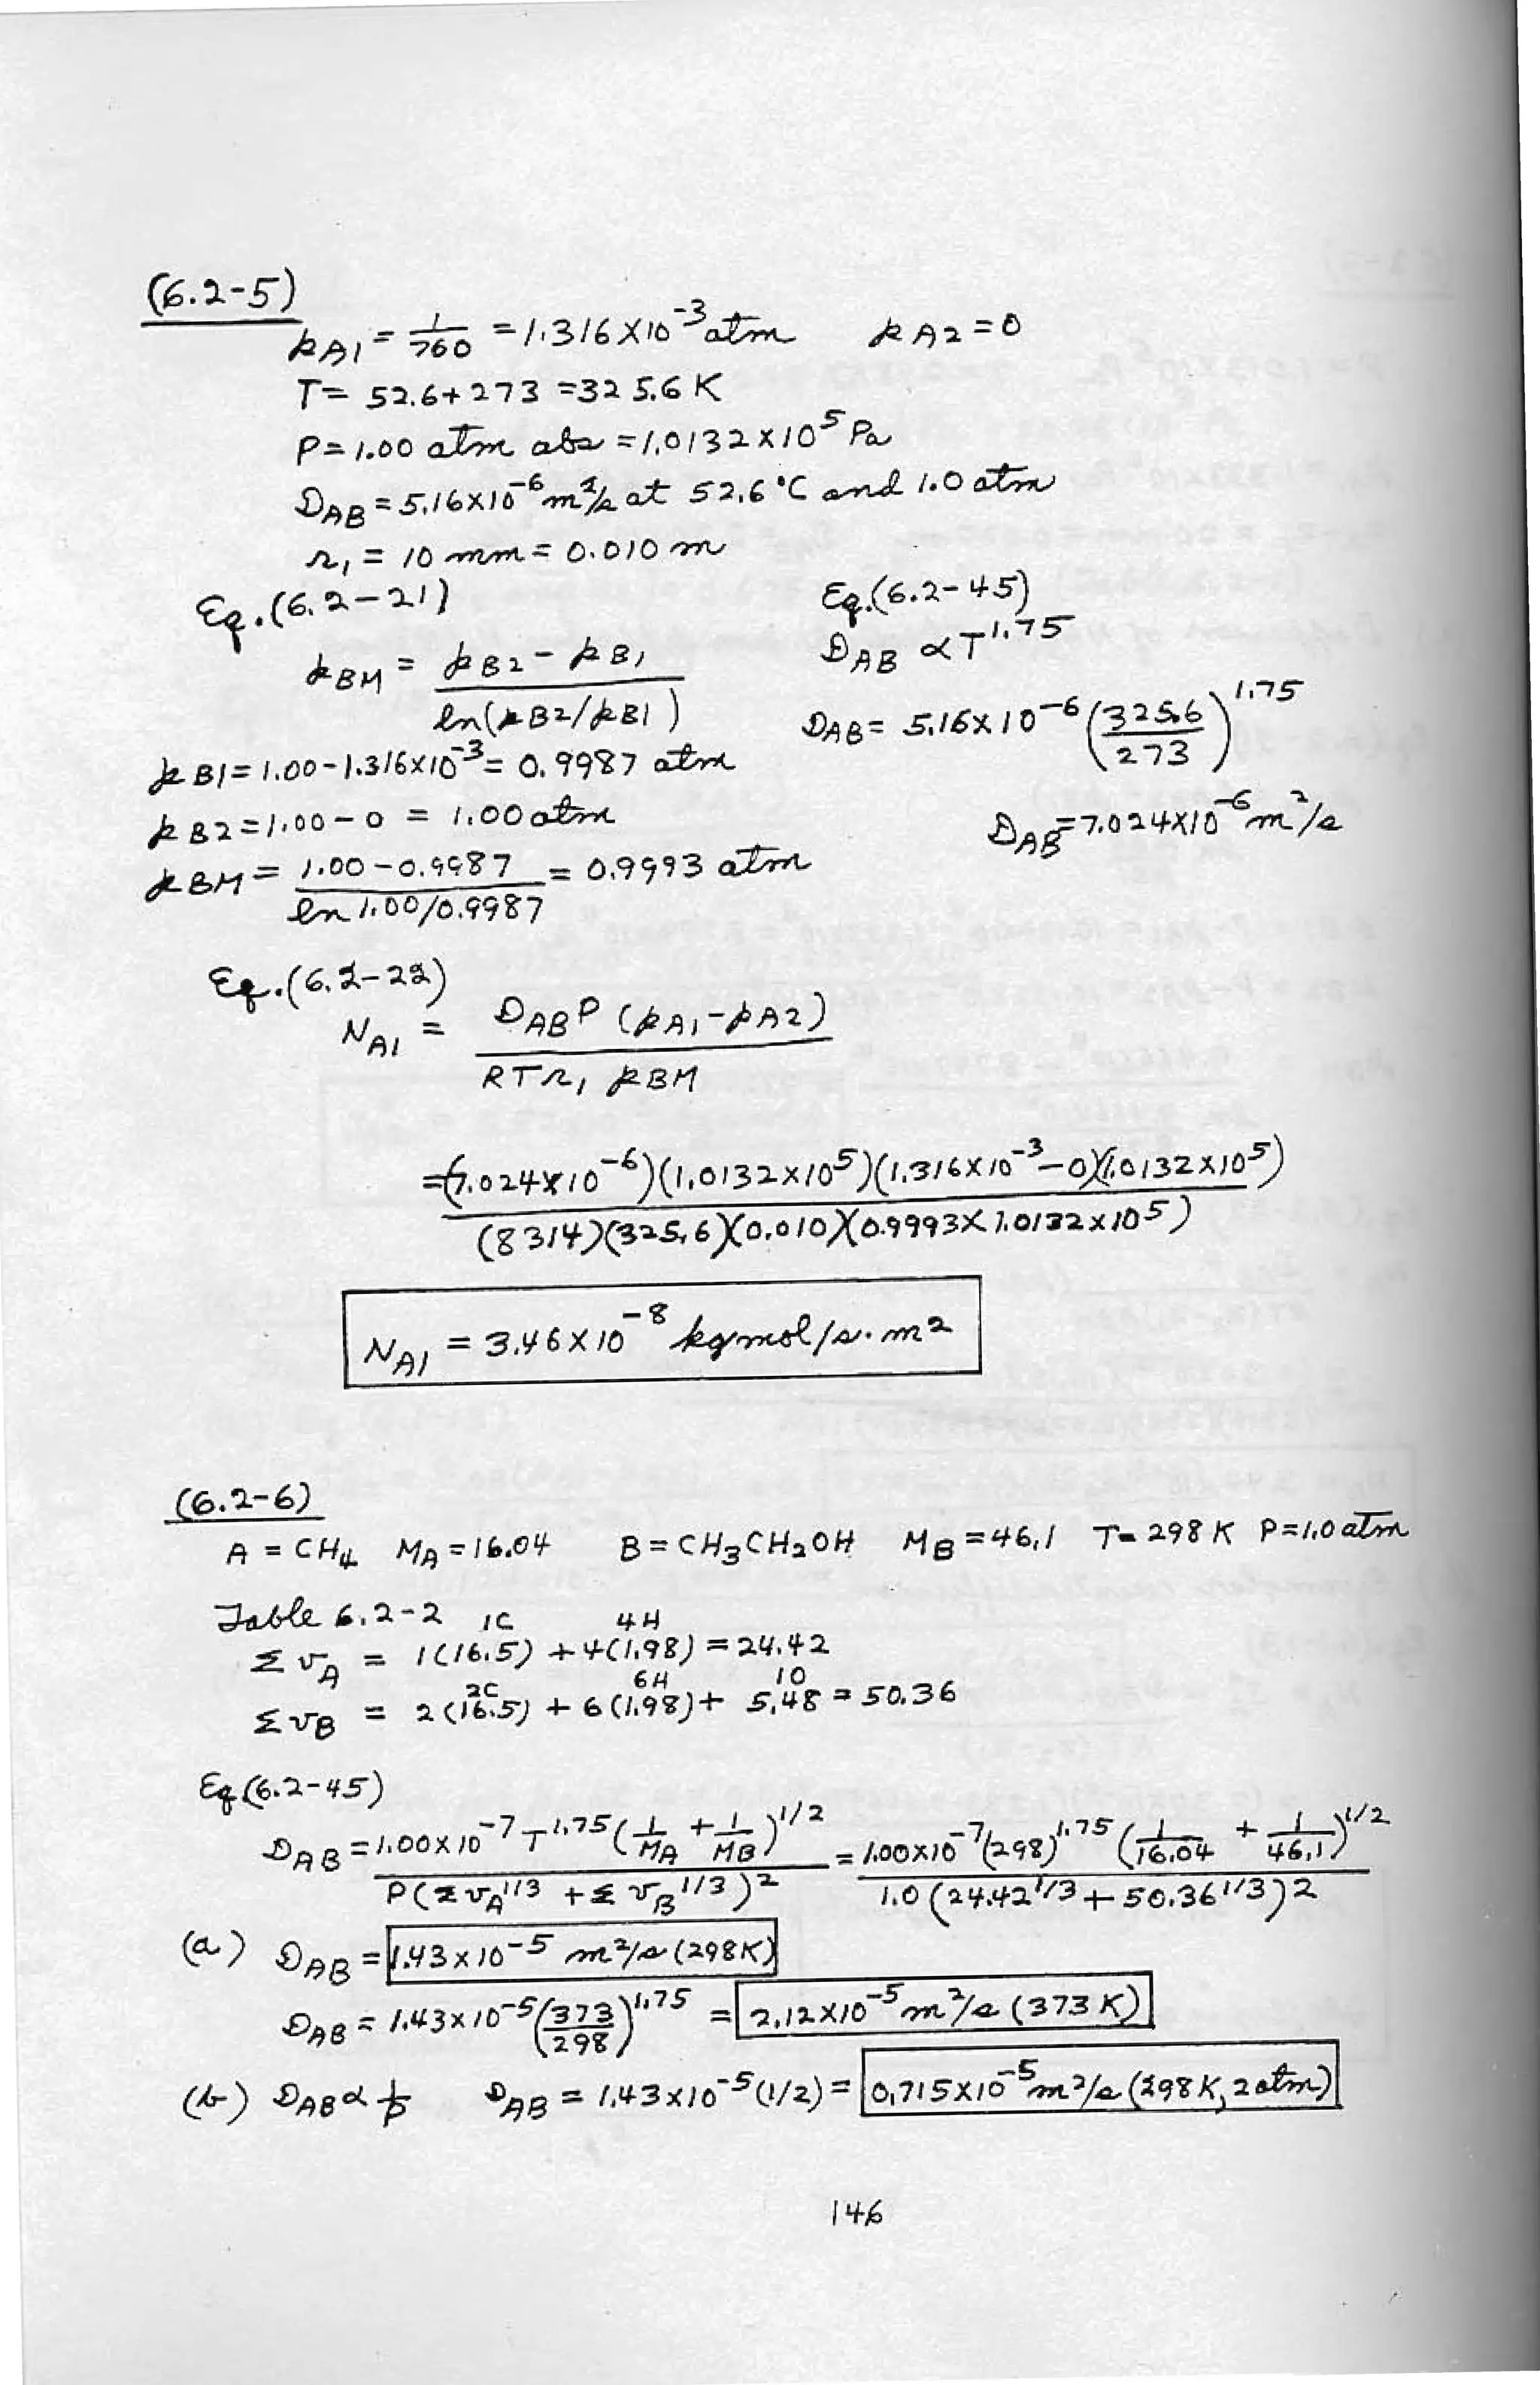 (6.2-5)
pA1 = 1/760 = 1.316×10^-3 atm   pA2 = 0
T = 52.6 + 273 = 325.6 K
P = 1.00 atm abs = 1.0132×10^5 Pa
DAB = 5.16×10^-6 m²/s at 52.6 °C and 1.0 atm
r1 = 10 mm = 0.010 m
Eq.(6.2-21)   Eq.(6.2-45)
pBM = (pB2 - pB1) / ln(pB2/pB1)   DAB ∝ T^1.75
DAB = 5.16×10^-6 (325.6/273)^1.75
pB1 = 1.00 - 1.316×10^-3 = 0.9987 atm
pB2 = 1.00 - 0 = 1.00 atm   DAB = 7.024×10^-6 m²/s
pBM = (1.00 - 0.9987) / (ln 1.00/0.9987) = 0.9993 atm
Eq.(6.2-22)
NA1 = DAB P (pA1 - pA2) / (RT r1 pBM)
= (7.024×10^-6)(1.0132×10^5)(1.316×10^-3 - 0)(1.0132×10^5) / (8314)(325.6)(0.010)(0.9993×1.0132×10^5)
NA1 = 3.46×10^-8 kgmol/s·m²
(6.2-6)
A = CH4   MA = 16.04   B = CH3CH2OH   MB = 46.1   T = 298 K   P = 1.0 atm
Table 6.2-2   1C   4H
Σ vA = 1(16.5) + 4(1.98) = 24.42
2C   6H   1O
Σ vB = 2(16.5) + 6(1.98) + 5.48 = 50.36
Eq.(6.2-45)
DAB = 1.00×10^-7 T^1.75 (1/MA + 1/MB)^1/2 / P(Σ vA^1/3 + Σ vB^1/3)^2 = 1.00×10^-7 (298)^1.75 (1/16.04 + 1/46.1)^1/2 / 1.0(24.42^1/3 + 50.36^1/3)^2
(a) DAB = 1.43×10^-5 m²/s (298K)
DAB = 1.43×10^-5 (373/298)^1.75 = 2.12×10^-5 m²/s (373 K)
(b) DAB ∝ 1/p   DAB = 1.43×10^-5 (1/2) = 0.715×10^-5 m²/s (298 K, 2 atm)
146